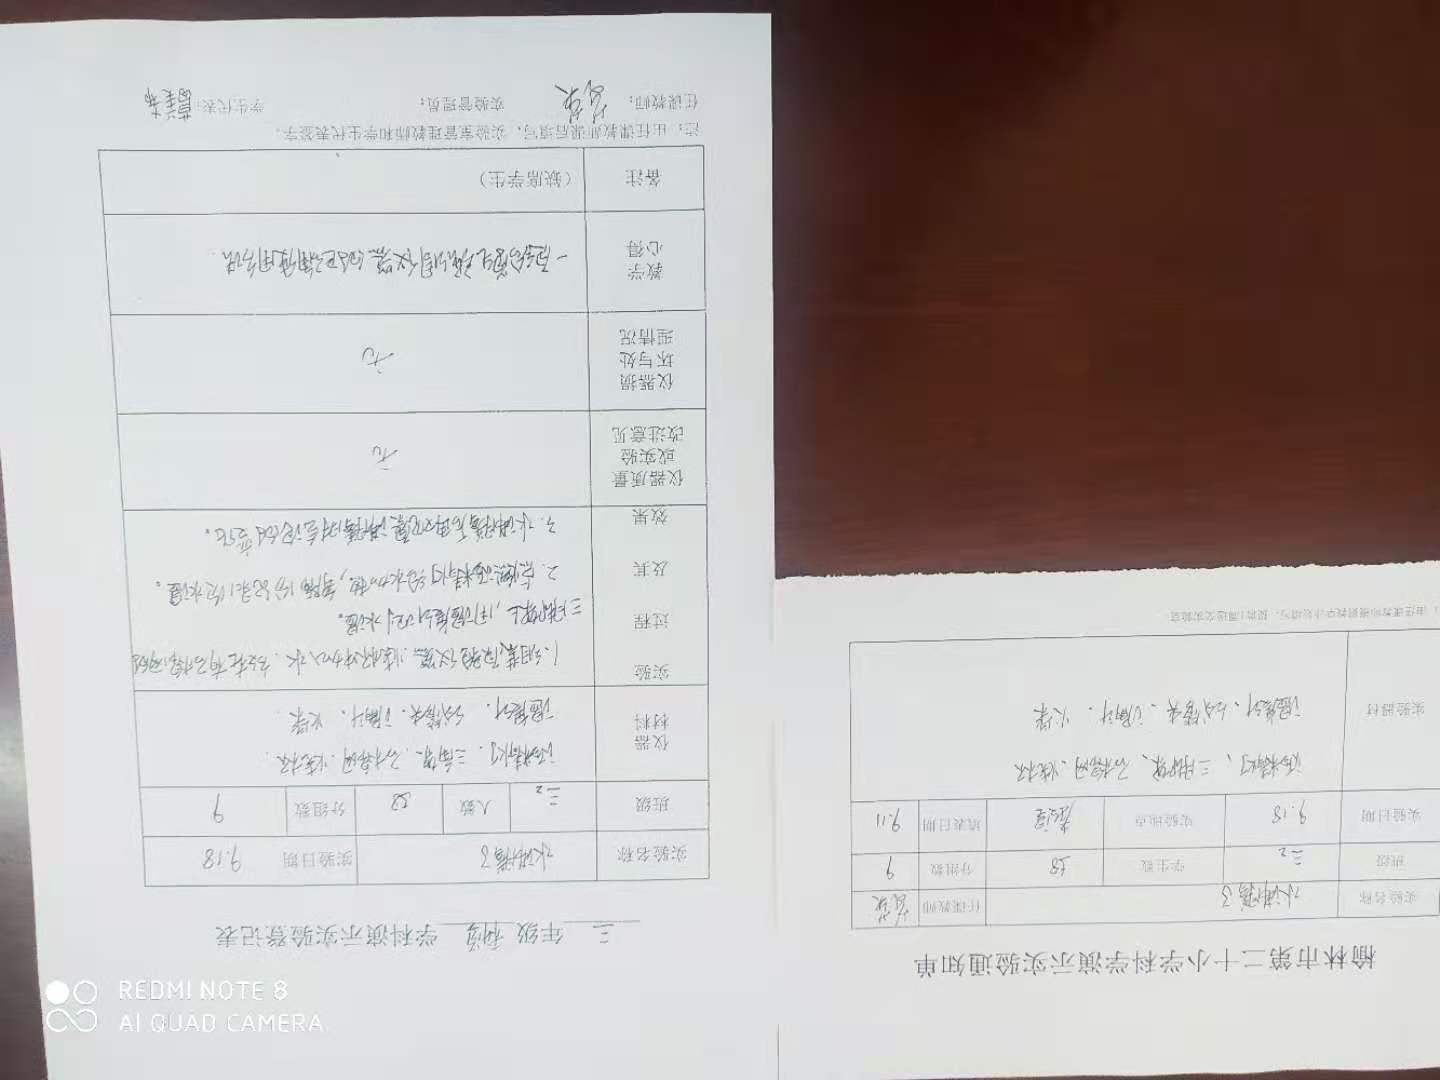 三 年级 科学 学科演示实验登记表
实验名称 水沸腾了 实验日期 9.18
班级 三2 人数 58 分组数 9
仪器材料 酒精灯、三角架、石棉网、烧杯、
温度计、试管夹、火柴
实验过程及其效果
1.组装实验仪器.烧杯中加入水.放在有石棉网的
三脚架上,用温度计测水温。
2.点燃酒精灯给水加热,每隔1分记录1次水温。
3.水沸腾后再观察沸腾时的变化。
仪器质量或实验改进意见 无
仪器损坏与处理情况 无
教学心得 一定给学生强调仪器的正确使用方法
备注 (缺席学生)
注:由任课教师课后填写,实验室管理教师和学生代表签字.
任课教师: 实验管理员: 学生代表:
榆林市第二十小学科学演示实验通知单
实验名称 水沸腾了 任课教师
班级 三2 学生数 58 分组数 9
实验日期 9.18 实验地点 教室 填表日期 9.11
实验器材
酒精灯、三脚架、石棉网、烧杯
温度计、试管夹、火柴
REDMI NOTE 8
AI QUAD CAMERA